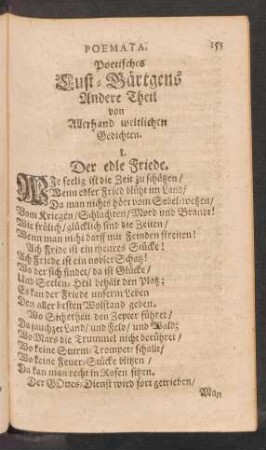 POEMATA. 153
Poetisches
Lust-Gärtgens
Andere Theil
von
Allerhand weltlichen
Gedichten.
I.
Der edle Friede.
WIe seelig ist die Zeit zu schätzen/
Wenn edler Fried blüht im Land/
Da man nichts hört vom Sebel-wetzen/
Vom Kriegen/ Schlachten/ Mord und Brandt!
Wie frölich/ glücklich sind die Zeiten/
Wenn man nicht darff mit Feinden streiten!
Ach Fride ist ein theures Stücke!
Ach Friede ist ein nobler Schatz!
Wo der sich findet/ da ist Glücke/
Und Seelen-Heil behält den Platz;
Es kan der Friede unserm Leben
Den aller besten Wolstand geben.
Wo Sicherheit den Zepter führet/
Da jauchzet Land/ und Feld/ und Wald;
Wo Mars die Trummel nicht berühret/
Wo keine Sturm-Trompet schallt/
Wo keine Feuer-Stücke blitzen/
Da kan man recht in Rosen sitzen.
Der GOttes-Dienst wird fort getrieben/
Man